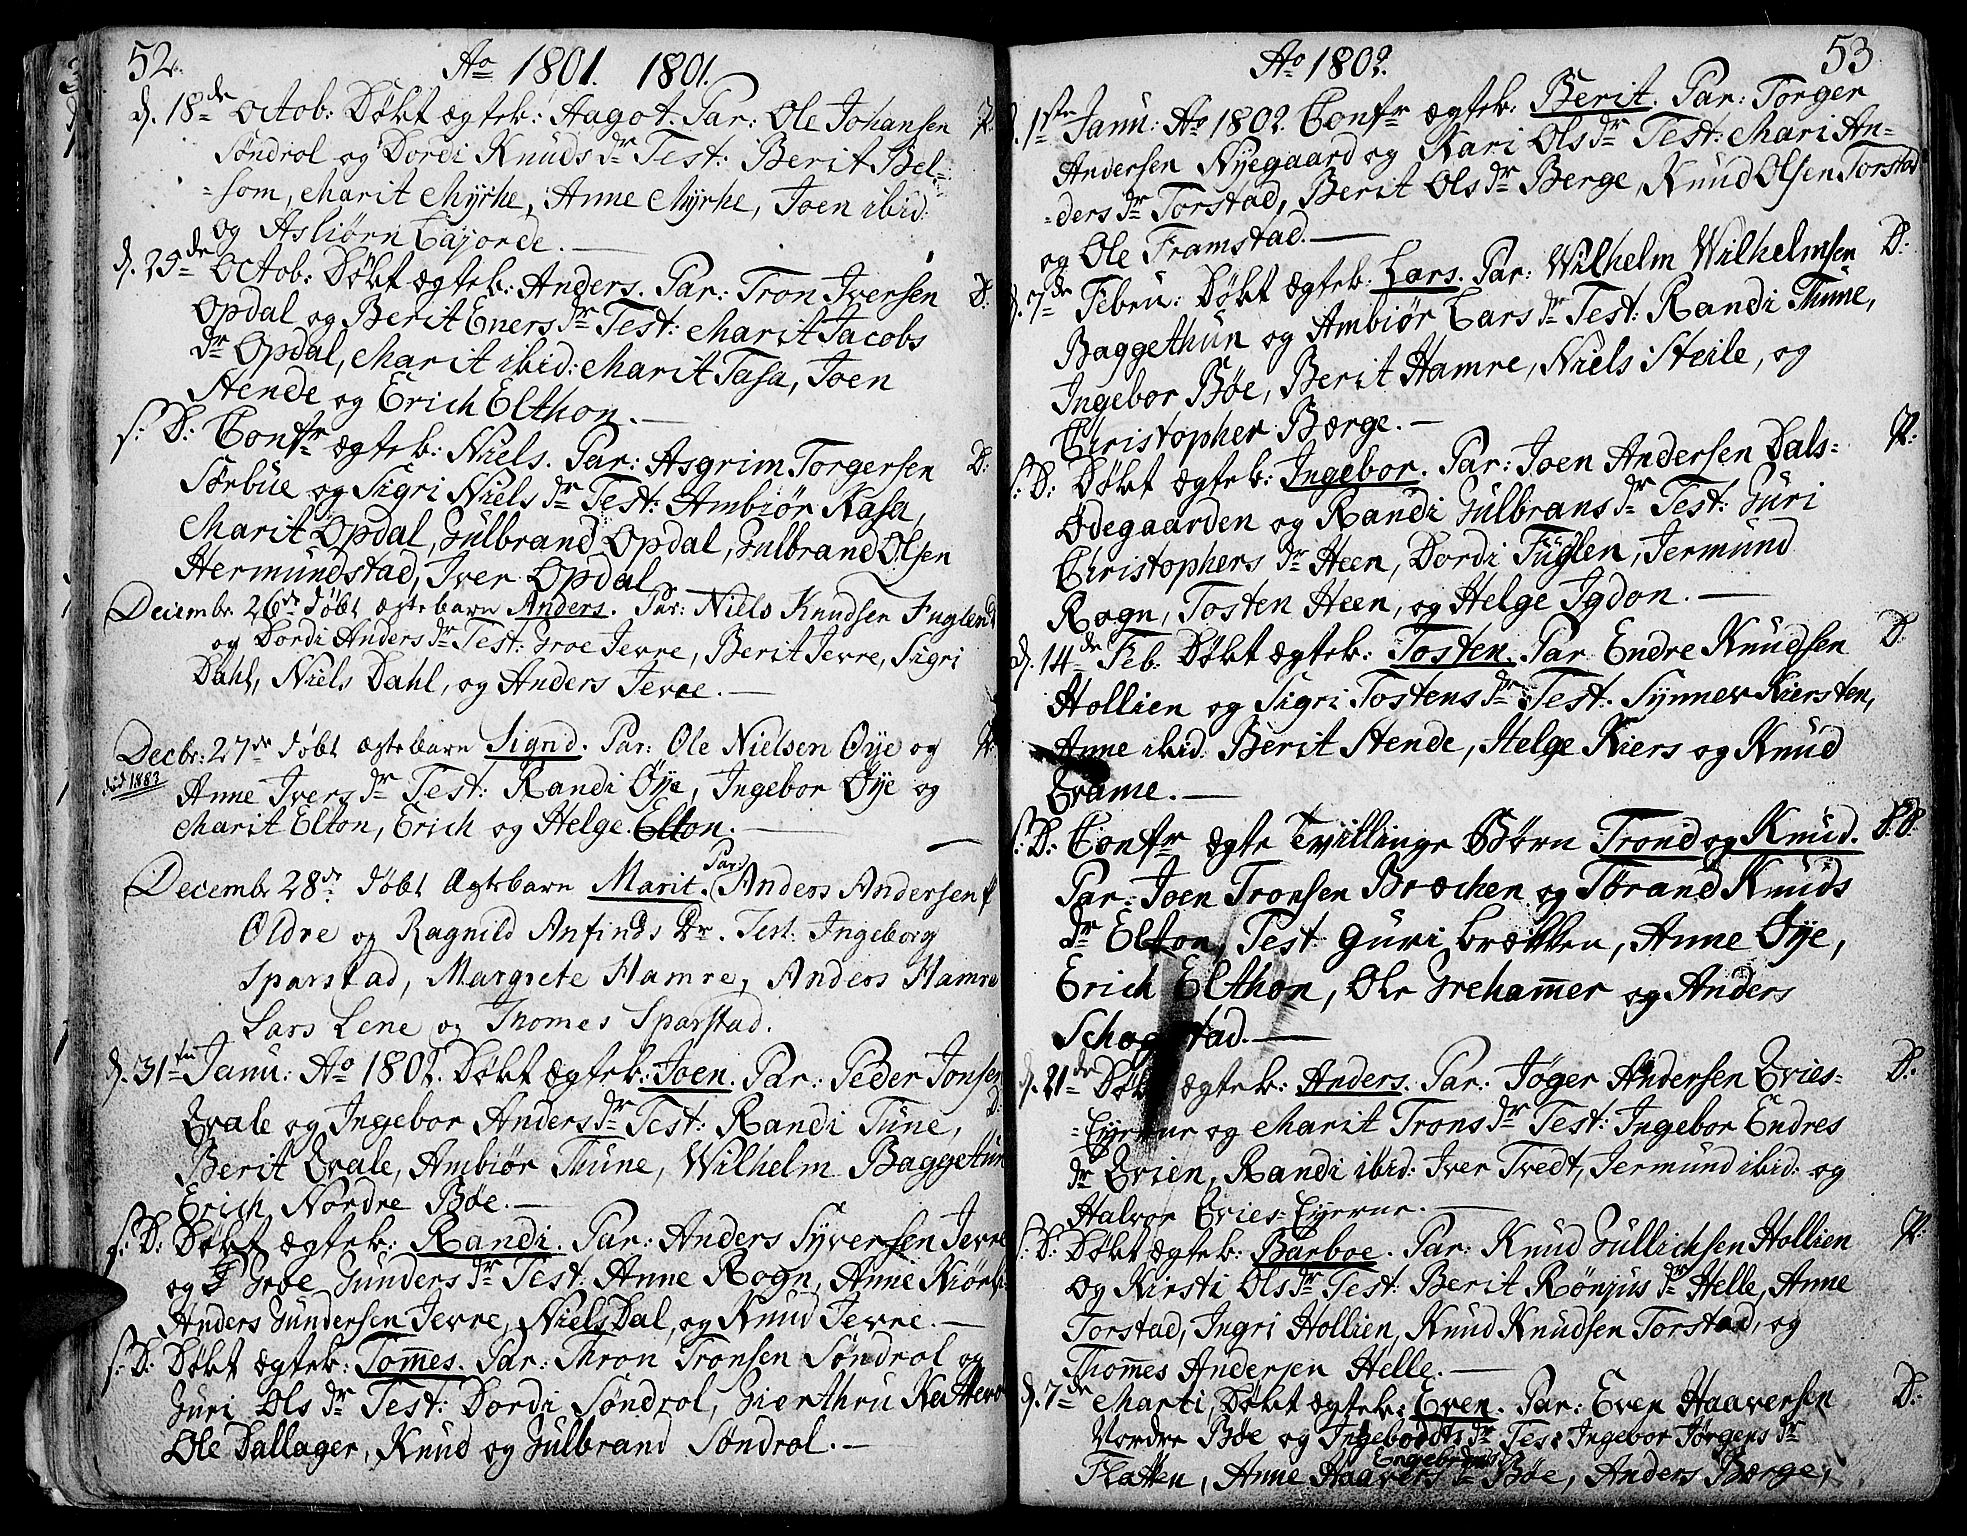 52.
Ao 1801. 1801.
d. 18de Octob: Døbt ægteb: Aagot. Par: Ole Johansen P.
Søndrol og Dordi Knuds dr Test: Berit Bel-
-som, Marit Myrhe, Anne Myrhe, Joen ibid:
og Asbiørn Lajorde.
d. 25de Octob: Døbt ægteb: Anders. Par: Tron Iversen D:
Opdal og Berit Eners dr Test: Marit Jacobs
dr Opdal, Marit ibid: Marit Tasa, Joen
Stende og Erich Elthon.
s: D: Confr ægteb: Niels. Par: Asgrim Torgersen D:
Sørbüe og Sigri Niels dr Test: Ambiør Kasa,
Marit Opdal, Gülbrand Opdal, Gülbrand Olsen
Hermündstad, Iver Opdal.
Decembr 26de døbt ægtebarn Anders. Par: Niels Knudsen Fuglen D
og Dordi Anders dr Test: Groe Jevre, Berit Jevre, Sigri
Dahl, Niels Dahl, og Anders Jevre.
Decbr: 27de døbt ægtebarn Signd. Par: Ole Nielsen Øye og P.
død 1883
Anne Ivers dr Test: Randi Øye, Ingebor Øye og
Marit Elton, Erich og Helge Elton.
Decembr 28de døbt Ægtebarn Marit. Par: Anders Andersen
Oldre og Ragnild Anfinds Dr. Test: Ingeborg
Sparstad, Margrete Hamre, Anders Hamre
Lars Lene og Thomes Sparstad.
d. 31te Janu: Ao 1802. Døbt ægteb: Joen. Par: Peder Jonsen
Qvale og Ingebor Anders dr Test: Randi Tüne, D.
Berit Qvale, Ambiør Thüne, Wilhelm Baggetün
Erich Nordre Bøe.
s: D: Døbt ægteb: Randi. Par: Anders Syversen Jevre
og Groe Gunders dr Test: Anne Rogn, Anne Kiørli
Anders Gündersen Jevre, Niels Dal, og Knud Jevre.
s: D: Døbt ægteb: Tom̄es. Par: Thron Tronsen Søndrol og
Guri Ols dr Test: Dordi Søndrol, Gierthru Kattevo
Ole Dallager, Knud og Gülbrand Søndrol.
Ao 1802. 53
d. 1ste Janu: Ao 1802. Confr ægteb: Berit. Par: Torger
Andersen Nÿegaard og Kari Ols dr Test: Mari An-
-ders dr Torstad, Berit Ols dr Berge, Knud Olsen Torstad
og Ole Framstad.
d. 7de Febru: Døbt ægteb: Lars. Par: Wilhelm Wilhelmsen D:
Baggethün og Ambiør Lars dr Test: Randi Thüne,
Ingebor Bøe, Berit Hamre, Niels Steile, og
Christopher Berge.
s: D: Døbt ægteb: Ingebor. Par: Joen Andersen Dals- P:
Ødegaarden og Randi Gülbrans dr Test: Guri
Christophers dr Heen, Dordi Füglen, Jermund
Rogn, Tosten Heen, og Helge Igdon.
d. 14de Feb: Døbt ægteb: Tosten. Par Endre Knudsen D:
Hollien og Sigri Tostens dr Test: Synnev Kiersten,
Anne ibid: Berit Stende, Helge Kiers og Knud
Qvame.
s: D: Confr ægte Tvillinge Børn Trond og Knud. D: D:
Par: Joen Tronsen Bræchen og Tørand Knuds
dr Elton, Test Guri Brækken, Anne Øye,
Erich Elthon, Ole Greham̄er og Anders
Schogstad.
d. 21de Døbt ægteb: Anders. Par: Jøger Andersen Qvies- D:
-Eyerne og Marit Trons dr Test: Ingebor Endres
dr Qvien, Randi ibid: Iver Tvedt, Jermund ibid: og
Halvor Qvies-Eyerne.
s: D: Døbt ægteb: Barboe. Par: Knud Gullichsen Hollien P:
og Kirsti Ols dr Test: Berit Rønjus dr Helle, Anne
Torstad, Ingri Hollien, Knud Knudsen Torstad, og
Thom̄es Andersen Helle.
d. 7de Marti, Døbt ægteb: Even. Par: Even Haaversen D:
Nordre Bøe og Ingebor Ols dr Test Ingebor Jørgens dr
Flatten, Anne Haavers dr Bøe, Anders Berge,